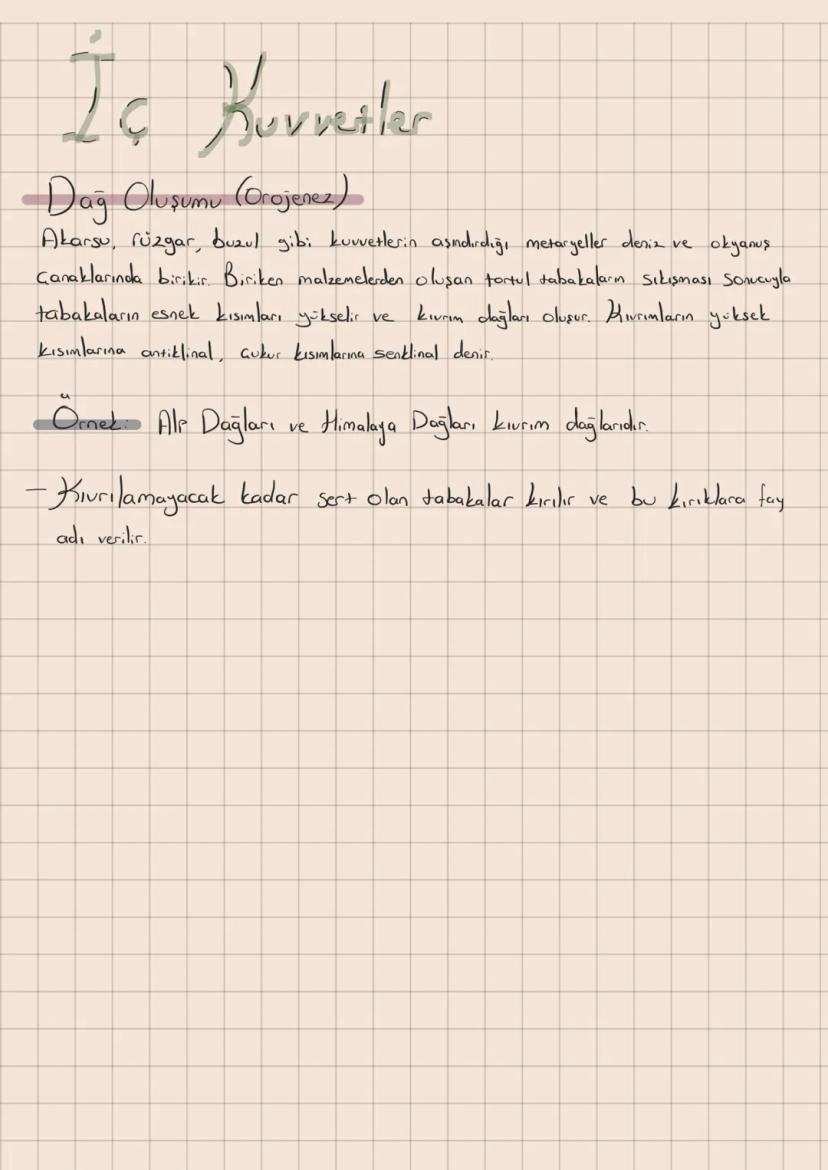 İç Kuvvetler
Dağ Oluşumu (Orojenez)
Akarsu, rüzgar, buzul gibi kuvvetlerin aşındırdığı metaryeller deniz ve okyanus
çanaklarında birikir. Biriken malzemelerden oluşan tortul tabakaların sıkışması sonucuyla
tabakaların esnek kısımları yükselir ve kıvrım dağları oluşur. Kıvrımların yüksek
kısımlarına antiklinal, çukur kısımlarına senklinal denir.
Örnek: Alp Dağları ve Himalaya Dağları kıvrım dağlarıdır.
- Kıvrılamayacak kadar sert olan tabakalar kırılır ve bu kırıklara fay
adı verilir.